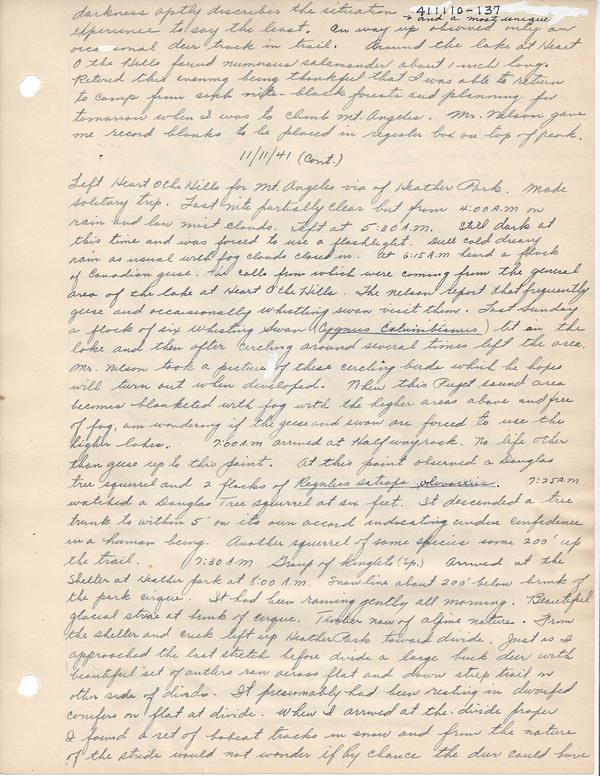 darkness aptly describes the situation 411110-137
experience to say the least. On way up observed only an
& and a most unique
occasional deer track in trail. Around the lake at Heart
O the Hills found numerous salamander about 1 inch long.
Retired this evening being thankful that I was able to return
to camp from such nite-black forests and planning for
tomorrow when I was to climb Mt. Angeles. Mr. Nelson gave
me record blanks to be placed in register box on top of peak.
11/11/41 (Cont.)
Left Heart O the Hills for Mt. Angeles via of Heather Park. Made
solitary trip. Last nite partially clear but from 4:00 A.M on
rain and low mist clouds. Left at 5:30 A.M. Still dark at
this time and was forced to use a flashlight. Dull cold dreary
rain as usual with fog clouds closed in. At 6:15 A.M heard a flock
of Canadian geese. The calls from which were coming from the general
area of the lake at Heart O the Hills. The Nelson report that frequently
geese and occassionally whistling swan visit them. Last Sunday
a flock of six Whistling Swan (Cygnus Columbianus) lit on the
lake and then after circling around several times left the area.
Mr. Nelson took a picture of these circling birds which he hopes
will turn out when developed. When this Puget sound area
becomes blanketed with fog with the higher areas above and free
of fog, am wondering if the geese and swan are forced to use the
higher lakes. 7:00 A.M arrived at Halfway rock. No life other
than geese up to this point. At this point observed a Douglas
tree squirrel and 2 flocks of Regulus satrapa olivaceus. 7:25 A.M
watched a Douglas Tree Squirrel at six feet. It descended a tree
trunk to within 5' on its own accord indicating undue confidence
in a human being. Another squirrel of same species some 200' up
the trail. 7:30 A.M Group of Kinglets (Sp.) Arrived at the
Shelter at Heather park at 8:00 A.M. Snowline about 200' below brink of
the park cirque. It had been raining gently all morning. Beautiful
glacial striae at brink of cirque. Timber now of alpine nature. From
the shelter and creek left up Heather Park toward divide. Just as I
approached the last stretch before divide a large buck deer with
beautiful set of antlers ran across flat and down steep trail on
other side of divide. It presumably had been resting in dwarfed
conifers on flat at divide. When I arrived at the divide proper
I found a set of bobcat tracks in snow and from the nature
of the stride would not wonder if by chance the deer could have